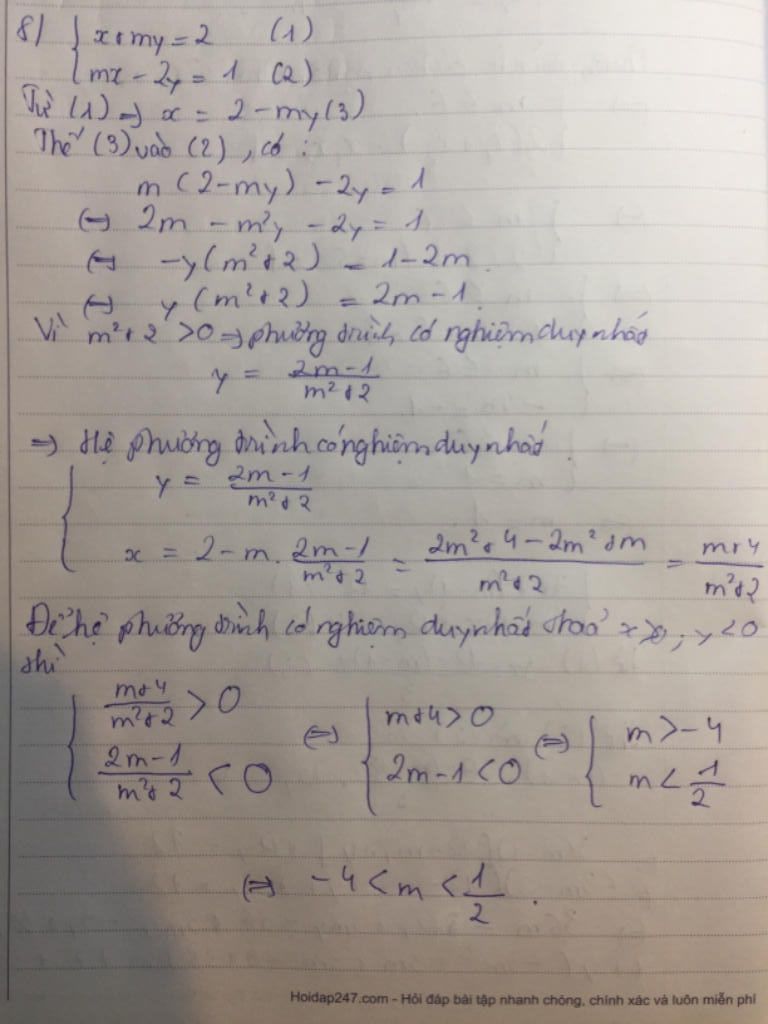 8) { x + my = 2 (1)
{ mx - 2y = 1 (2)
Từ (1) => x = 2 - my (3)
Thế (3) vào (2), có :
m (2 - my) - 2y = 1
<=> 2m - m²y - 2y = 1
<=> -y(m² + 2) = 1 - 2m
<=> y (m² + 2) = 2m - 1
Vì m² + 2 > 0 => phương trình có nghiệm duy nhất
y = (2m - 1)/(m² + 2)
=> Hệ phương trình có nghiệm duy nhất
{ y = (2m - 1)/(m² + 2)
{ x = 2 - m. (2m - 1)/(m² + 2) = (2m² + 4 - 2m² + m)/(m² + 2) = (m + 4)/(m² + 2)
Để hệ phương trình có nghiệm duy nhất thoả x > 0 ; y < 0
thì
{ (m + 4)/(m² + 2) > 0 <=> { m + 4 > 0 <=> { m > -4
{ (2m - 1)/(m² + 2) < 0 { 2m - 1 < 0 { m < 1/2
<=> -4 < m < 1/2 .
Hoidap247.com - Hỏi đáp bài tập nhanh chóng, chính xác và luôn miễn phí